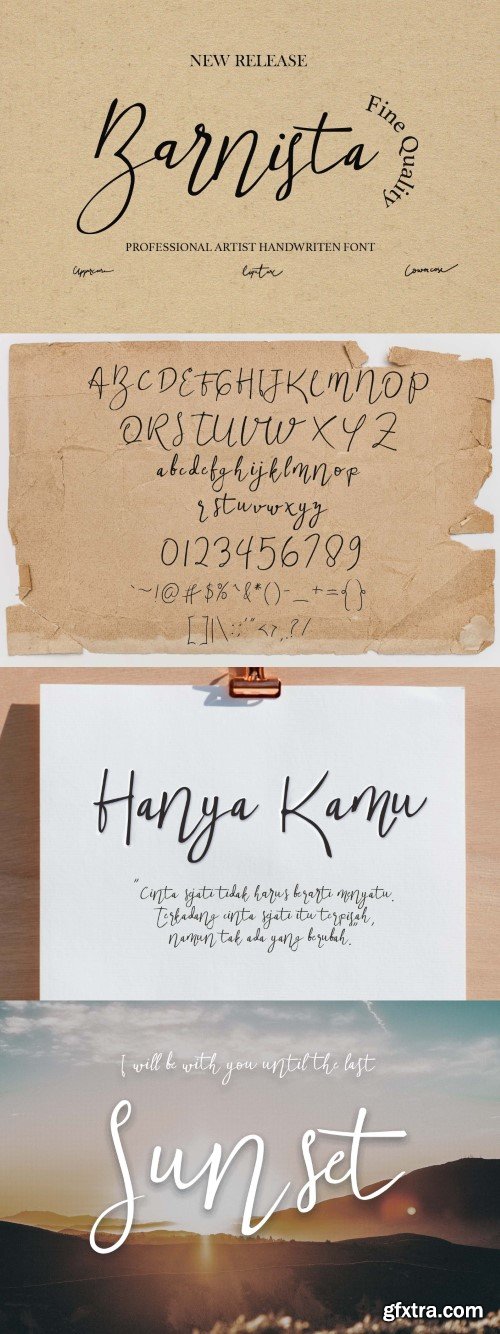 NEW RELEASE
Barnista
Fine Quality
PROFESSIONAL ARTIST HANDWRITEN FONT
Uppercase
Lowercase
ABCDEFGHIJKLMNOP
QRSTUVWXYZ
abcdefghijklmnop
rstuvwxyz
0123456789
`~!@#$%^&*()-_+={}
[]|\:;'"<>,.?/
Hanya Kamu
"Cinta sjati tidak harus berarti menyatu.
Terkadang cinta sjati itu terpisah,
namun tak ada yang berubah."
I will be with you until the last
Sunset
gfxtra.com